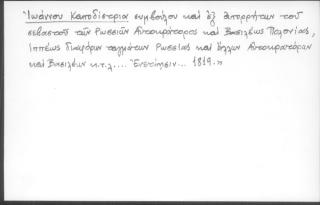 "Ἰωάννου Καποδίστρια συμβούλου καὶ ἐξ ἀπορρήτων τοῦ
σεβαστοῦ τῶν Ρωσσιῶν Αὐτοκράτορος καὶ Βασιλέως Πολονίας,
Ἱππέως διαφόρων ταγμάτων Ρωσσίας καὶ ἄλλων Αὐτοκρατόρων
καὶ Βασιλέων κ.τ.λ.... Ἐνετίησιν... 1819."